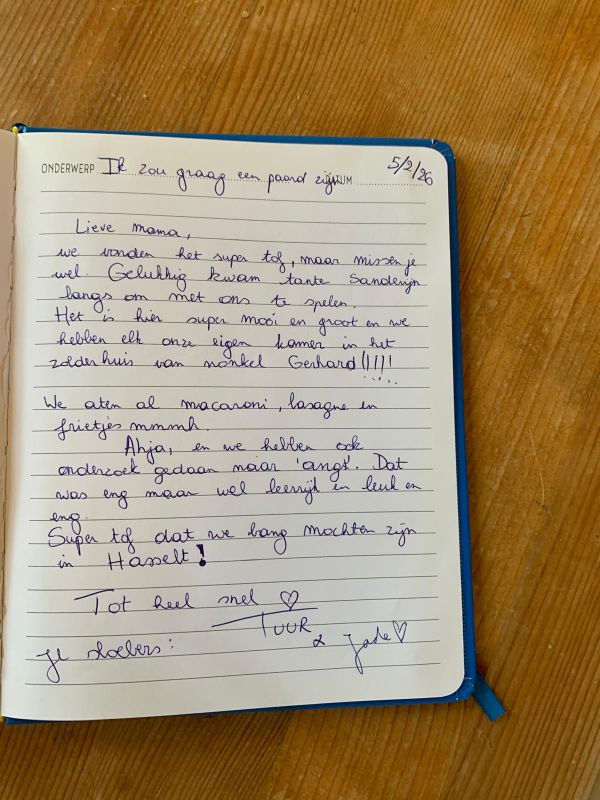 ONDERWERP Ik zou graag een paard zijn 5/2/26
Lieve mama,
we vonden het super tof, maar missen je
wel. Gelukkig kwam tante Sanderijn
langs om met ons te spelen.
Het is hier super mooi en groot en we
hebben elk onze eigen kamer in het
zolderhuis van nonkel Gerhard!!!!!
We aten al macaroni, lasagne en
frietjes mmmh.
Ahja, en we hebben ook
onderzoek gedaan naar 'angst'. Dat
was eng maar wel leerrijk en leuk en
eng.
Super tof dat we bang mochten zijn
in Hasselt!
Tot heel snel ♡
TUUR
je sloebers: & Jade ♡